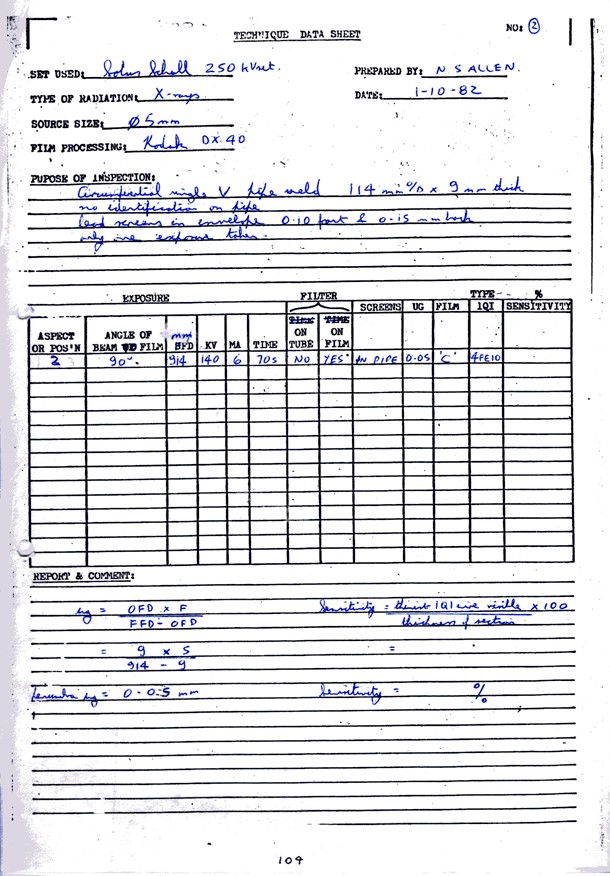 TECHNIQUE DATA SHEET
NO: 2
SET USED: Solus Schall 250 kV set.
PREPARED BY: N S ALLEN.
TYPE OF RADIATION: X-rays
DATE: 1-10-82
SOURCE SIZE: Ø 5mm
FILM PROCESSING: Kodak DX.40
PUPOSE OF INSPECTION:
Circumferential single V pipe weld 114 mm O/D x 9 mm thick
no identification on pipe
lead screens in envelope 0.10 front & 0.15 mm back
only one exposure taken.
EXPOSURE FILTER TYPE %
ASPECT OR POS'N ANGLE OF BEAM TO FILM mm FFD KV MA TIME ON TUBE ON FILM SCREENS UG FILM IQI SENSITIVITY
2 90°. 914 140 6 70s NO YES IN PIPE 0.05 'C' 4FE10
REPORT & COMMENT:
ug = OFD x F
FFD - OFD
Sensitivity = thinnest IQI wire visible x 100
thickness of section
= 9 x 5
914 - 9
=
ug = 0.05 mm
Sensitivity = %
104